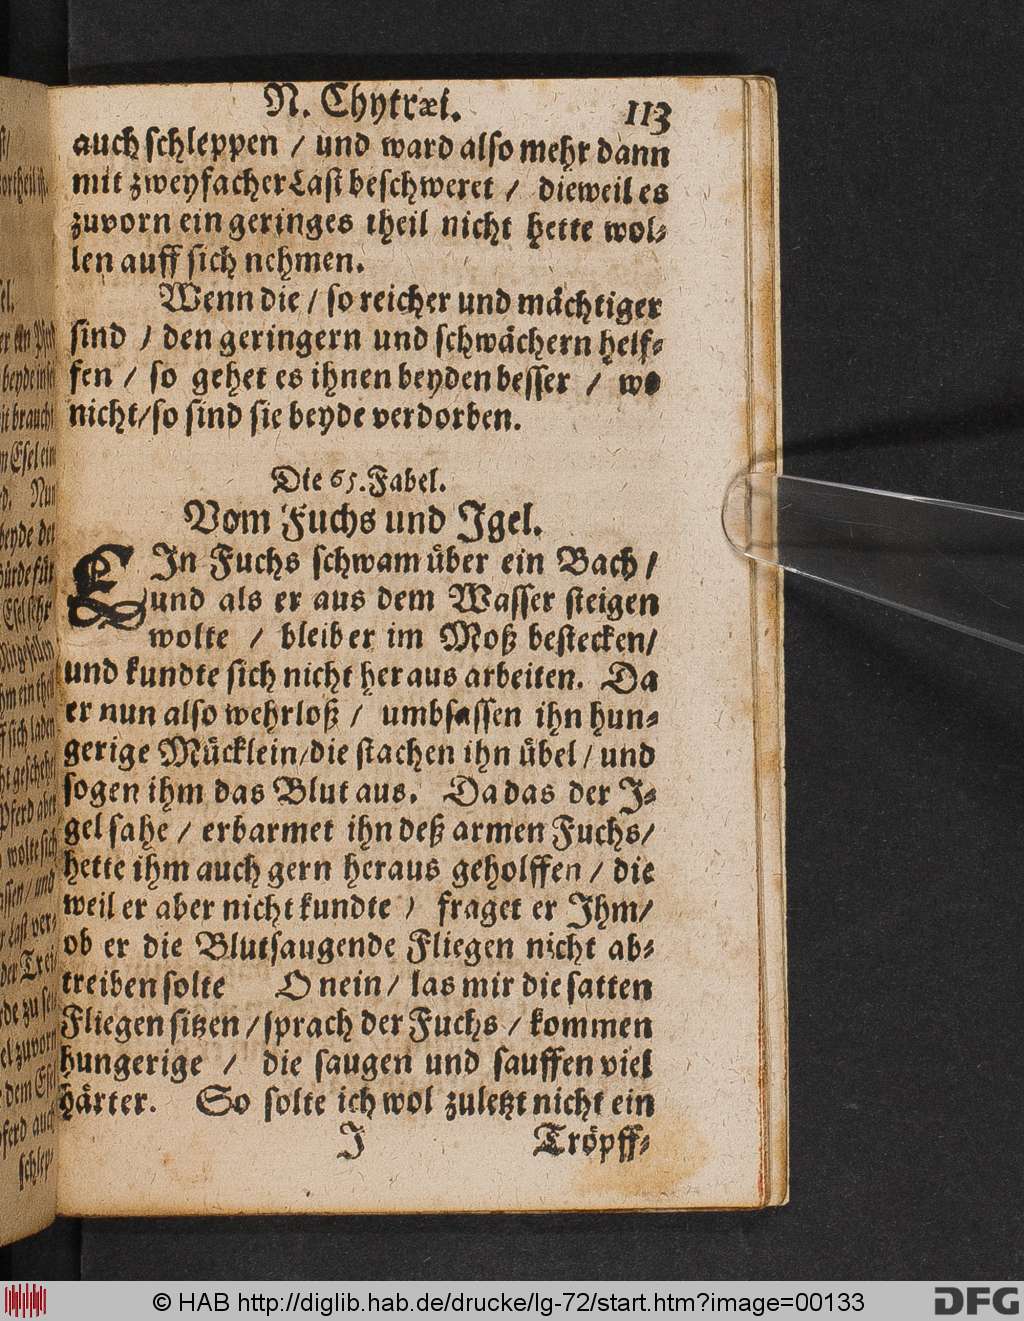 N. Chytræi. 113
auch schleppen / und ward also mehr dann
mit zweyfacher Last beschweret / dieweil es
zuvorn ein geringes theil nicht hette wol-
len auff sich nehmen.
Wenn die / so reicher und mächtiger
sind / den geringern und schwächern helf-
fen / so gehet es ihnen beyden besser / wo
nicht/so sind sie beyde verdorben.
Die 65. Fabel.
Vom Fuchs und Igel.
EIn Fuchs schwam über ein Bach /
und als er aus dem Wasser steigen
wolte / bleib er im Moß bestecken/
und kundte sich nicht heraus arbeiten. Da
er nun also wehrloß / umbsassen ihn hun-
gerige Mücklein/die stachen ihn übel / und
sogen ihm das Blut aus. Da das der I-
gel sahe / erbarmet ihn deß armen Fuchs/
hette ihm auch gern heraus geholffen / die
weil er aber nicht kundte / fraget er Ihm/
ob er die Blutsaugende Fliegen nicht ab-
treiben solte O nein / las mir die satten
Fliegen sitzen / sprach der Fuchs / kommen
hungerige / die saugen und sauffen viel
härter. So solte ich wol zuletzt nicht ein
I Tröpff-
© HAB http://diglib.hab.de/drucke/lg-72/start.htm?image=00133
DFG